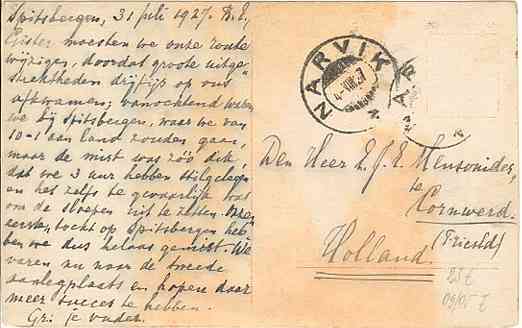 Spitsbergen, 31 juli 1927. B. E,
Gister moesten we onze route
wijzigen, doordat groote uitge-
strektheden drijfijs op ons
afkwamen; vanochtend waren
we bij Spitsbergen, waar we van
10-1 aan land zouden gaan,
maar de mist was zóó dik,
dat we 3 uur hebben stilgelegen
en het zelfs te gevaarlijk was
om de sloepen uit te zetten. Onzen
eersten tocht op Spitsbergen heb-
ben we dus helaas gemist. We
varen nu naar de tweede
aanlegplaats en hopen daar
meer succes te hebben.
Gr. je vader.
NARVIK
Den Heer E. J. E. Mensonides,
te
Cornwerd.
(Friesld)
Holland.